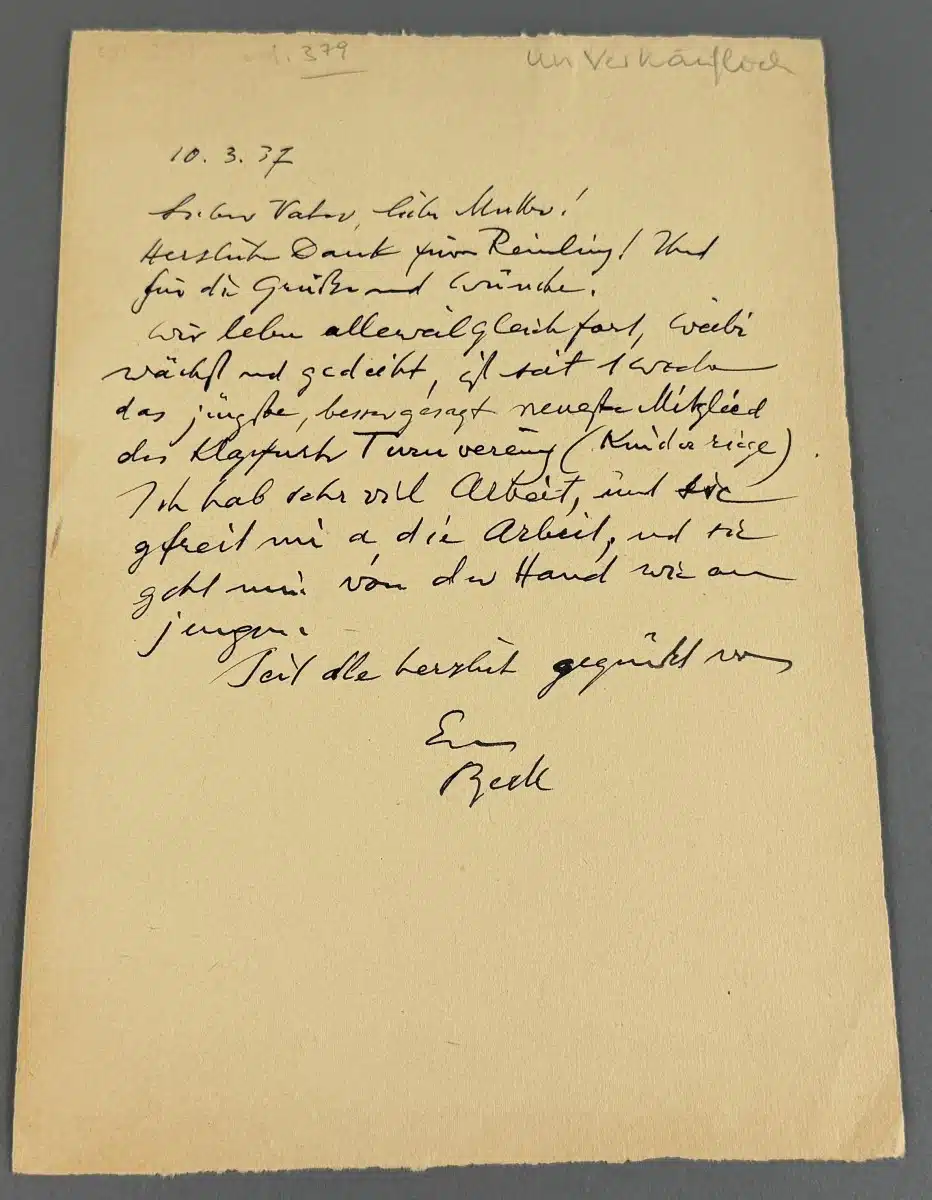 379
unverkäuflich
10. 3. 37
Lieber Vater, liebe Mutter!
Herzlichen Dank fürn Reinling! Und
für die Grüße und Wünsche.
Wir leben alleweil gleich fort, Weibi
wächst und gedeiht, ist seit 1 Woche
das jüngste, besser gesagt neueste Mitglied
des Klagfurter Turnvereins (Kinderriege).
Ich hab sehr viel Arbeit, und sie
gfreit mi a, die Arbeit, und sie
geht mir von der Hand wie am
jungen.
Seid alle herzlich gegrüßt von